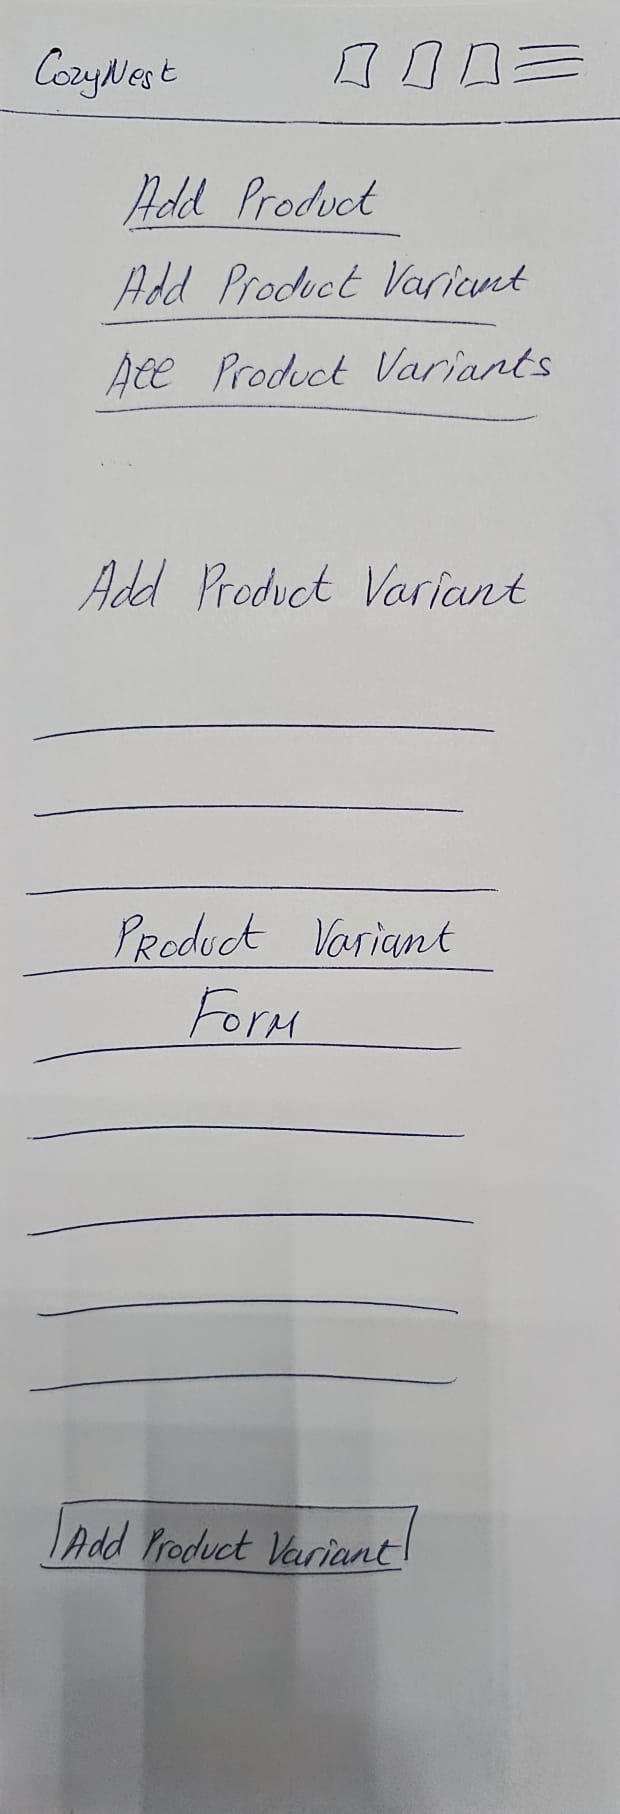 CozyNest
Add Product
Add Product Variant
All Product Variants
Add Product Variant
Product Variant
Form
Add Product Variant